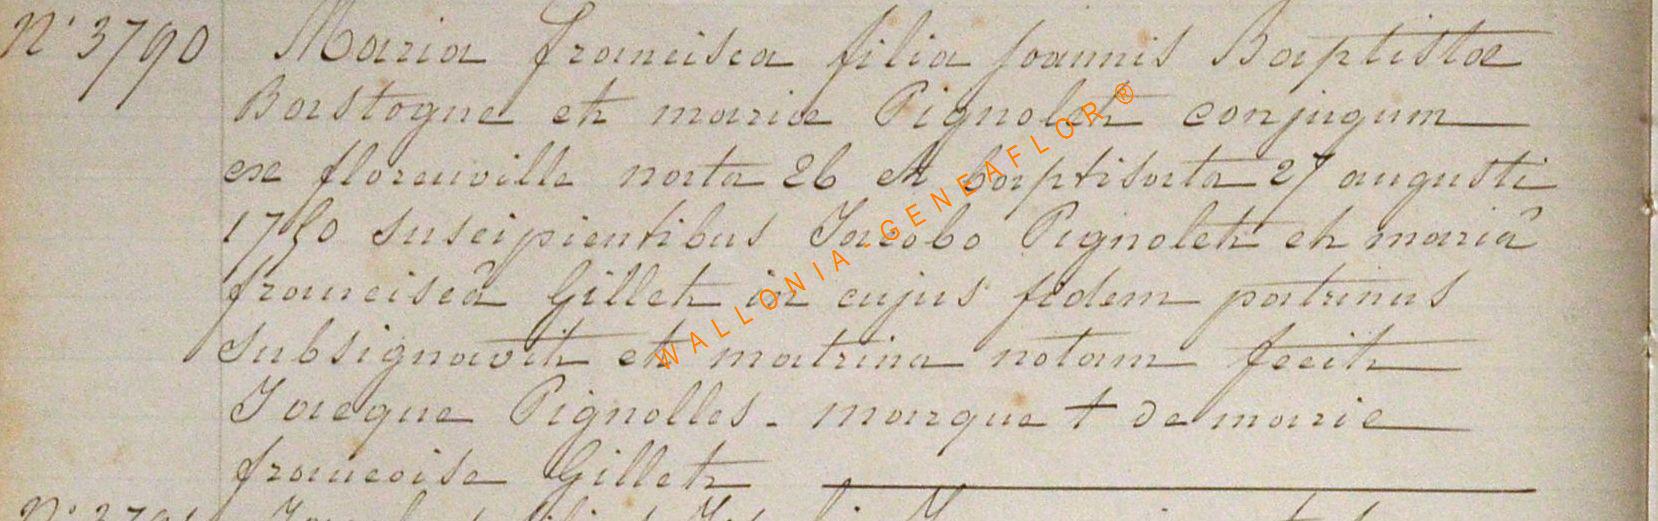 N° 3790 Maria francisca filia Joannis Baptistae
Bastogne et mariae Pignolet conjugum
ex florenville nata 26 et baptisata 27 augusti
suscipientibus Jacobo Pignolet et mariâ
franciscâ Gillet in cujus fidem patrinus
subsignavit et matrina notam fecit
Jacque Pignolles - marque + de marie
francoise Gillet
WALLONIA-GENEAFLOR ®